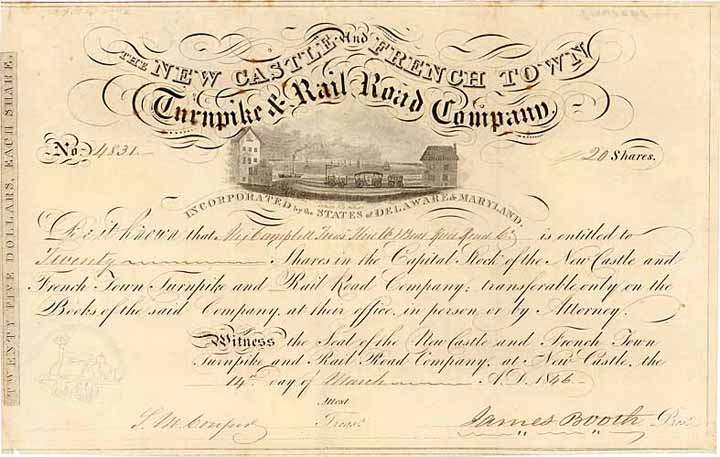 THE NEW CASTLE And FRENCH TOWN
Turnpike & Rail Road Company.
No. 4831
20 Shares.
INCORPORATED by the STATES of DELAWARE & MARYLAND.
Be it known that is entitled to
Twenty Shares in the Capital Stock of the New Castle and
French Town Turnpike and Rail Road Company; transferable only on the
Books of the said Company, at their office, in person or by Attorney.
Witness the Seal of the New Castle and French Town
Turnpike and Rail Road Company, at New Castle, the
14th day of March A.D. 1846
Attest
Treasr.
James Booth Prest.
TWENTY FIVE DOLLARS, EACH SHARE.